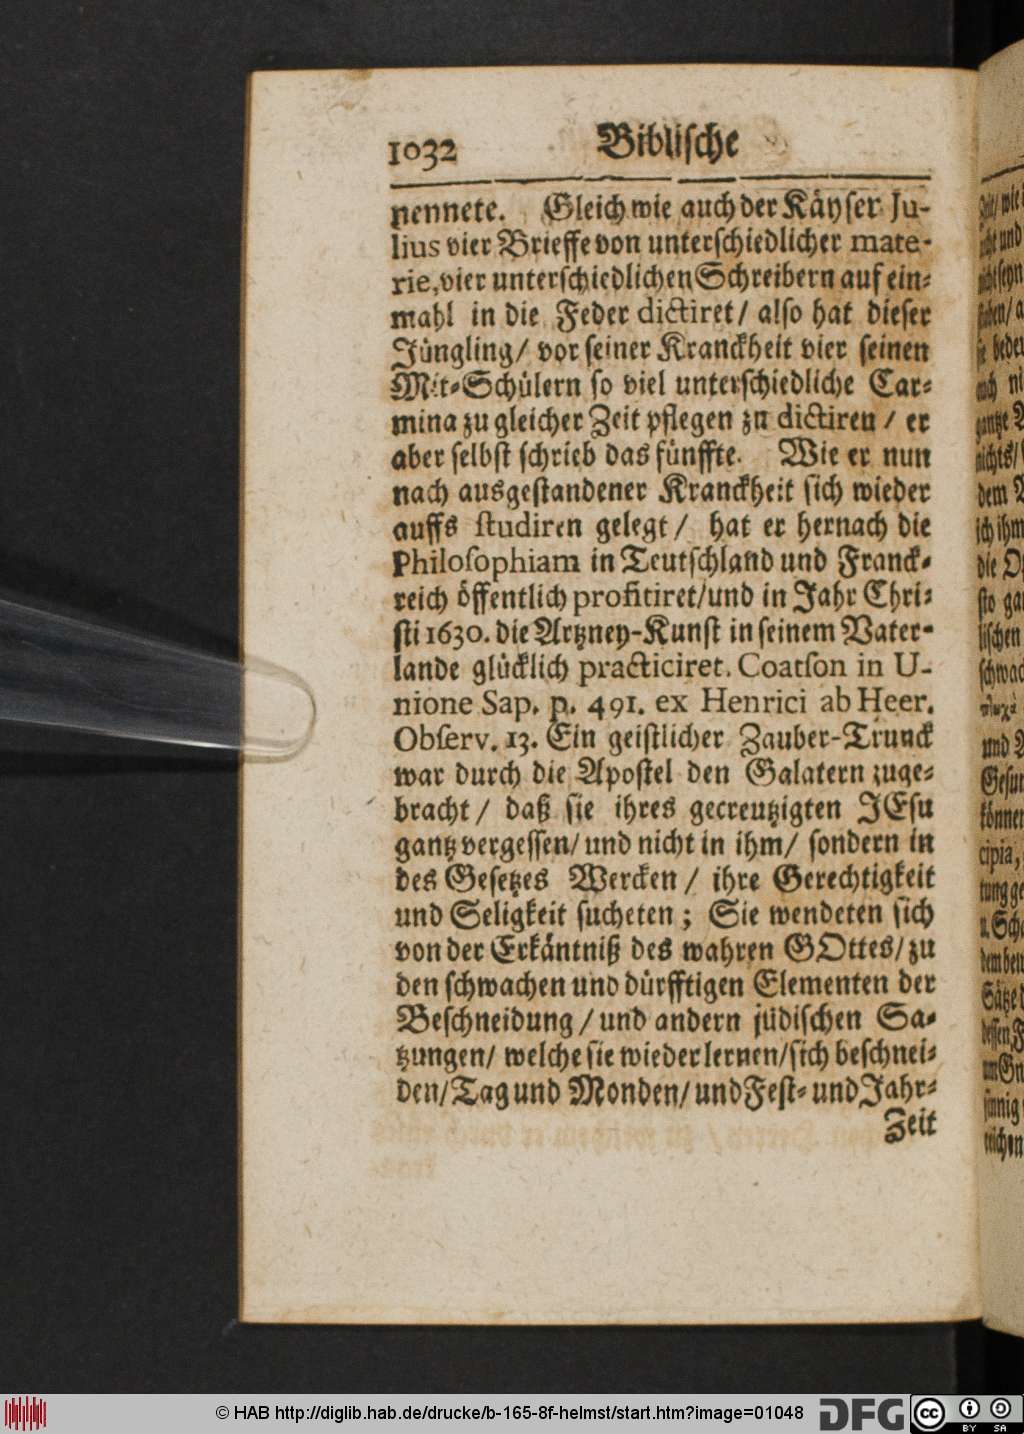 1032 Biblische
nennete. Gleich wie auch der Käyser Ju-
lius vier Brieffe von unterschiedlicher mate-
rie, vier unterschiedlichen Schreibern auf ein-
mahl in die Feder dictiret / also hat dieser
Jüngling / vor seiner Kranckheit vier seinen
Mit-Schülern so viel unterschiedliche Car-
mina zu gleicher Zeit pflegen zu dictiren / er
aber selbst schrieb das fünffte. Wie er nun
nach ausgestandener Kranckheit sich wieder
auffs studiren gelegt / hat er hernach die
Philosophiam in Teutschland und Franck-
reich öffentlich profitiret / und in Jahr Chri-
sti 1630. die Artzney-Kunst in seinem Vater-
lande glücklich practiciret. Coatson in U-
nione Sap. p. 491. ex Henrici ab Heer.
Observ. 13. Ein geistlicher Zauber-Trunck
war durch die Apostel den Galatern zuge-
bracht / daß sie ihres gecreutzigten JEsu
gantz vergessen / und nicht in ihm / sondern in
des Gesetzes Wercken / ihre Gerechtigkeit
und Seligkeit sucheten ; Sie wendeten sich
von der Erkäntniß des wahren GOttes / zu
den schwachen und dürfftigen Elementen der
Beschneidung / und andern jüdischen Sa-
tzungen / welche sie wieder lernen / sich beschnei-
den / Tag und Monden / und Fest- und Jahr-
Zeit
© HAB http://diglib.hab.de/drucke/b-165-8f-helmst/start.htm?image=01048
DFG
cc BY SA